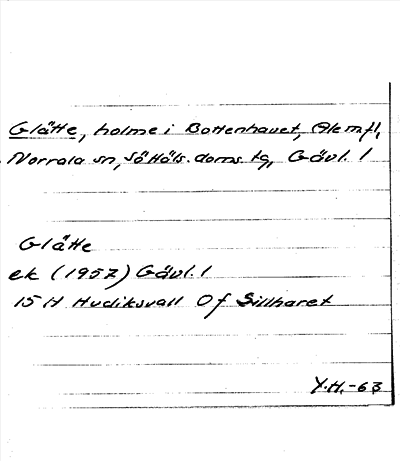 Glätte, holme i Bottenhavet, Ale m fl,
Norrala sn, Sö Häls. doms. tg, Gävl. l
Glätte
ek (1957) Gävl. l
15 H Hudiksvall 0 f Sillharet
Y.H.-63